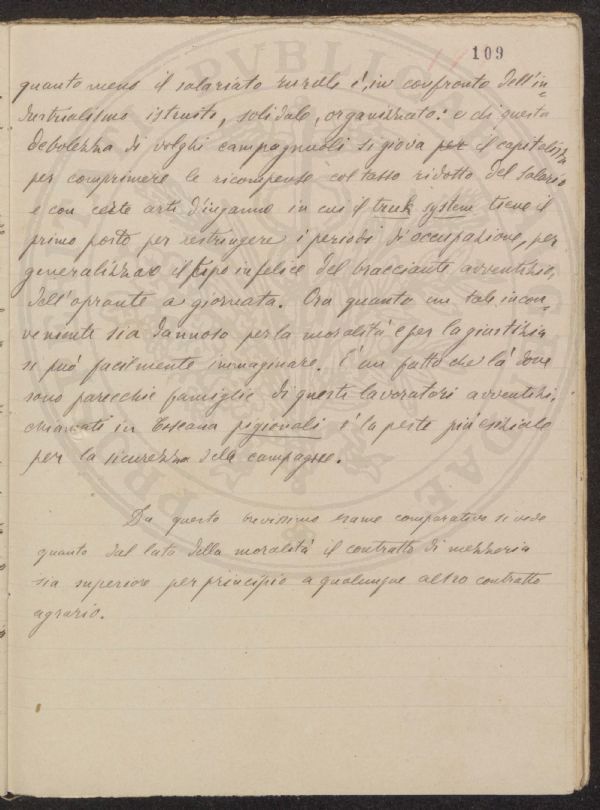 109
quanto meno il salariato rurale è, in confronto dell'in-
dustrialismo istruito, solidale, organizzato: e di questa
debolezza di volghi campagnuoli si giova per il capitalista
per comprimere le ricompense col tasso ridotto del salario
e con certe arti d'inganno in cui il truk system tiene il
primo posto per restringere i periodi d'occupazione, per
generalizzare il tipo infelice del bracciante avventizio,
dell'oprante a giornata. Ora quanto un tale incon-
veniente sia dannoso per la moralità e per la giustizia
si può facilmente immaginare. È un fatto che là dove
sono parecchie famiglie di questi lavoratori avventizi,
chiamati in Toscana pigionali è la peste più esiziale
per la sicurezza delle campagne.
Da questo brevissimo esame comparativo si vede
quanto dal lato della moralità il contratto di mezzeria
sia superiore per principio a qualunque altro contratto
agrario.
PVBLICAE